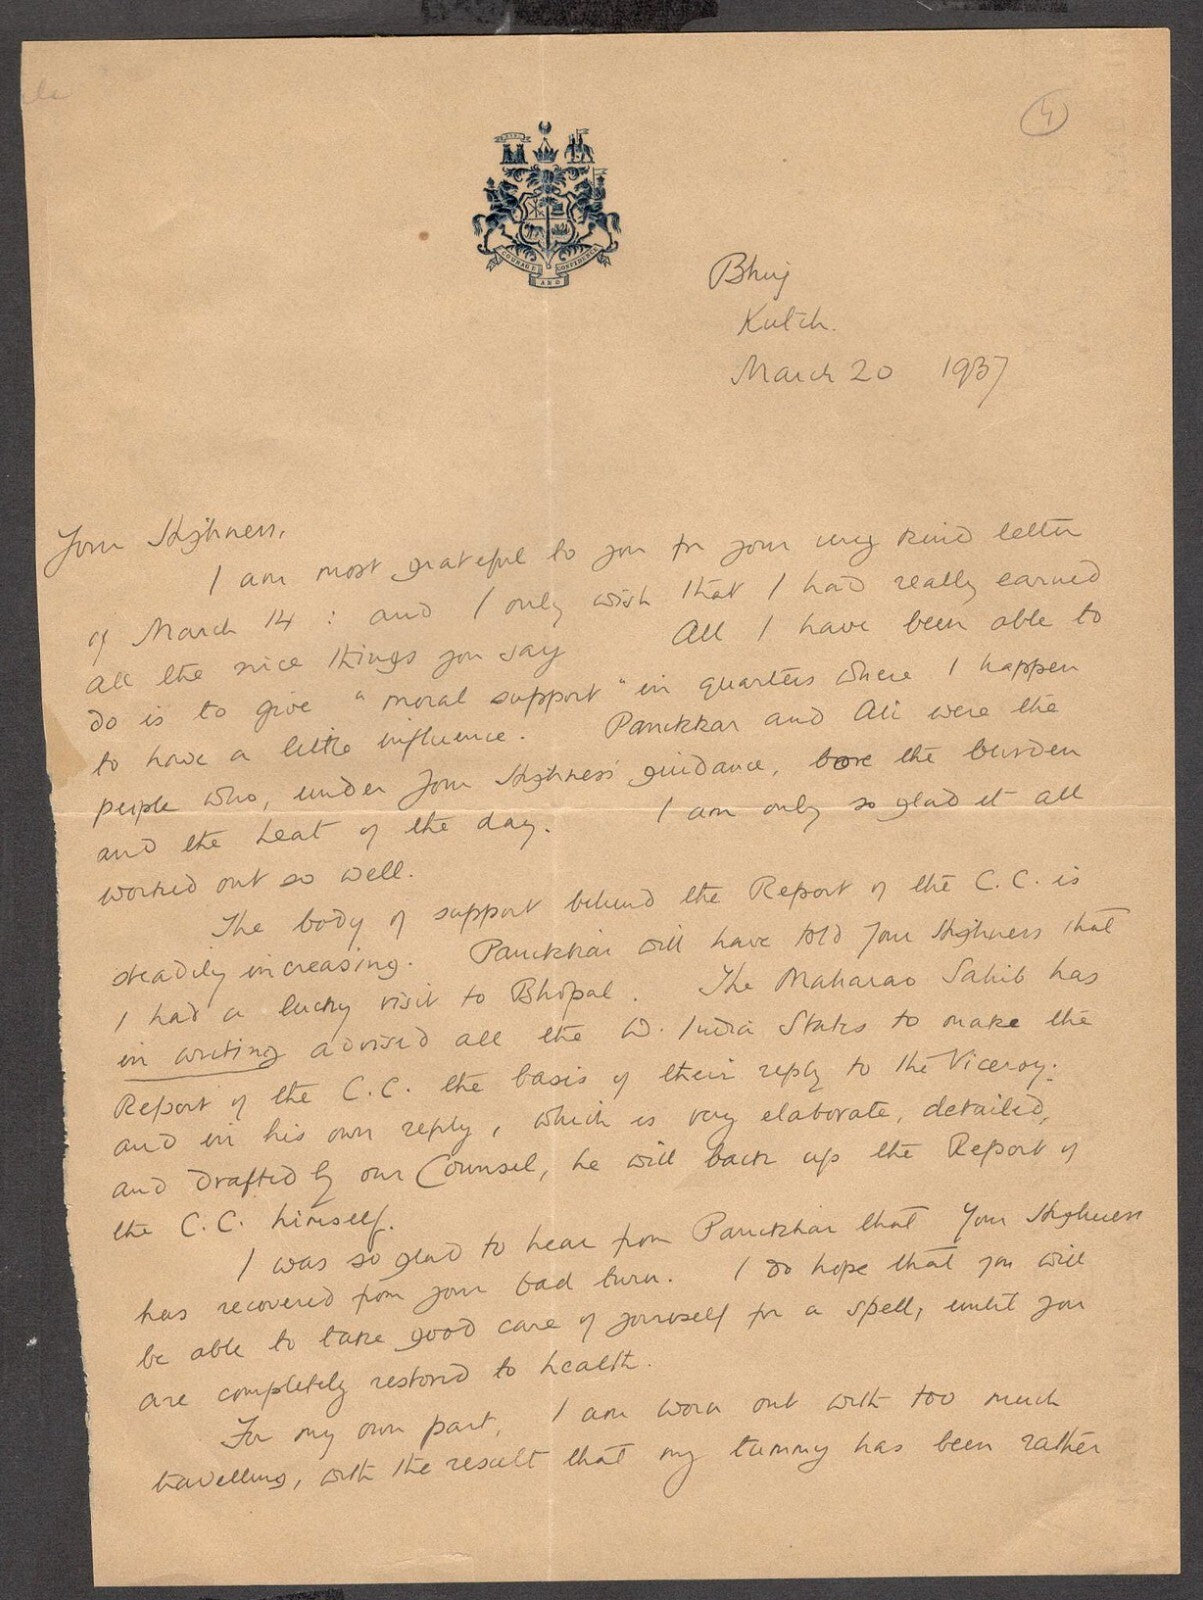 4
COURAGE AND CONFIDENCE
Bhuj
Kutch.
March 20 1937
Your Highness,
I am most grateful to you for your very kind letter
of March 14 : and I only wish that I had really earned
all the nice things you say All I have been able to
do is to give "moral support" in quarters where I happen
to have a little influence. Panikkar and Ali were the
people who, under Your Highness' guidance, bore the burden
and the heat of the day. I am only so glad it all
worked out so well.
The body of support behind the Report of the C.C. is
steadily increasing. Panikkar will have told Your Highness that
I had a lucky visit to Bhopal. The Maharao Sahib has
in writing advised all the W. India States to make the
Report of the C.C. the basis of their reply to the Viceroy:
and in his own reply, which is very elaborate, detailed,
and drafted by our Counsel, he will back up the Report of
the C.C. himself.
I was so glad to hear from Panikkar that Your Highness
has recovered from your bad turn. I do hope that you will
be able to take good care of yourself for a spell, until you
are completely restored to health.
For my own part, I am worn out with too much
travelling, with the result that my tummy has been rather